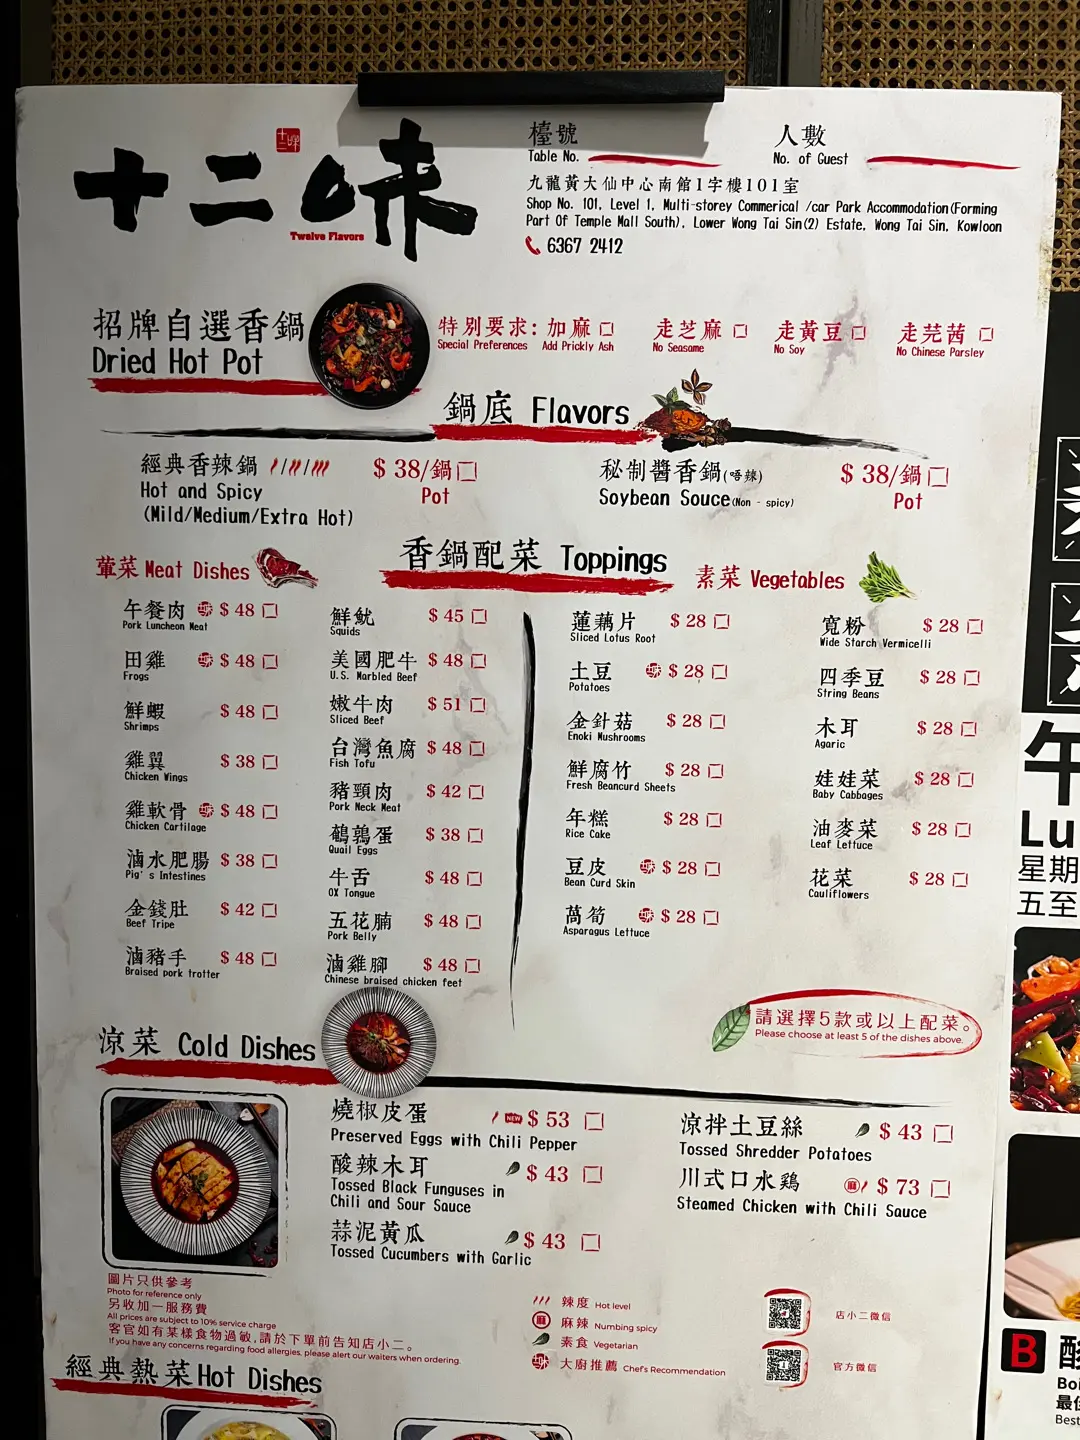 十二味
十二味
Twelve Flavors
檯號
Table No.
人數
No. of Guest
九龍黃大仙中心南館1字樓101室
Shop No. 101, Level 1, Multi-storey Commerical /car Park Accommodation(Forming
Part Of Temple Mall South), Lower Wong Tai Sin(2) Estate, Wong Tai Sin, Kowloon
6367 2412
招牌自選香鍋
Dried Hot Pot
特別要求: 加麻 走芝麻 走黃豆 走芫茜
Special Preferences Add Prickly Ash No Seasame No Soy No Chinese Parsley
鍋底 Flavors
經典香辣鍋 $ 38/鍋
Hot and Spicy Pot
(Mild/Medium/Extra Hot)
秘制醬香鍋(唔辣) $ 38/鍋
Soybean Souce(Non - spicy) Pot
香鍋配菜 Toppings
葷菜 Meat Dishes
午餐肉 $ 48
Pork Luncheon Meat
田雞 $ 48
Frogs
鮮蝦 $ 48
Shrimps
雞翼 $ 38
Chicken Wings
雞軟骨 $ 48
Chicken Cartilage
滷水肥腸 $ 38
Pig's Intestines
金錢肚 $ 42
Beef Tripe
滷豬手 $ 48
Braised pork trotter
鮮魷 $ 45
Squids
美國肥牛 $ 48
U.S. Marbled Beef
嫩牛肉 $ 51
Sliced Beef
台灣魚腐 $ 48
Fish Tofu
豬頸肉 $ 42
Pork Neck Meat
鵪鶉蛋 $ 38
Quail Eggs
牛舌 $ 48
OX Tongue
五花腩 $ 48
Pork Belly
滷雞腳 $ 48
Chinese braised chicken feet
素菜 Vegetables
蓮藕片 $ 28
Sliced Lotus Root
土豆 $ 28
Potatoes
金針菇 $ 28
Enoki Mushrooms
鮮腐竹 $ 28
Fresh Beancurd Sheets
年糕 $ 28
Rice Cake
豆皮 $ 28
Bean Curd Skin
萵筍 $ 28
Asparagus Lettuce
寬粉 $ 28
Wide Starch Vermicelli
四季豆 $ 28
String Beans
木耳 $ 28
Agaric
娃娃菜 $ 28
Baby Cabbages
油麥菜 $ 28
Leaf Lettuce
花菜 $ 28
Cauliflowers
請選擇5款或以上配菜。
Please choose at least 5 of the dishes above.
涼菜 Cold Dishes
燒椒皮蛋 NEW $ 53
Preserved Eggs with Chili Pepper
酸辣木耳 $ 43
Tossed Black Funguses in
Chili and Sour Sauce
蒜泥黃瓜 $ 43
Tossed Cucumbers with Garlic
涼拌土豆絲 $ 43
Tossed Shredder Potatoes
川式口水鷄 麻 $ 73
Steamed Chicken with Chili Sauce
圖片只供參考
Photo for reference only
另收加一服務費
All prices are subject to 10% service charge
客官如有某樣食物過敏,請於下單前告知店小二。
If you have any concerns regarding food allergies, please alert our waiters when ordering.
辣度 Hot level
麻 麻辣 Numbing spicy
素食 Vegetarian
大廚推薦 Chef's Recommendation
店小二微信
官方微信
經典熱菜 Hot Dishes
午
Lu
星期
五至
B 酸
Boi
最佳
Best